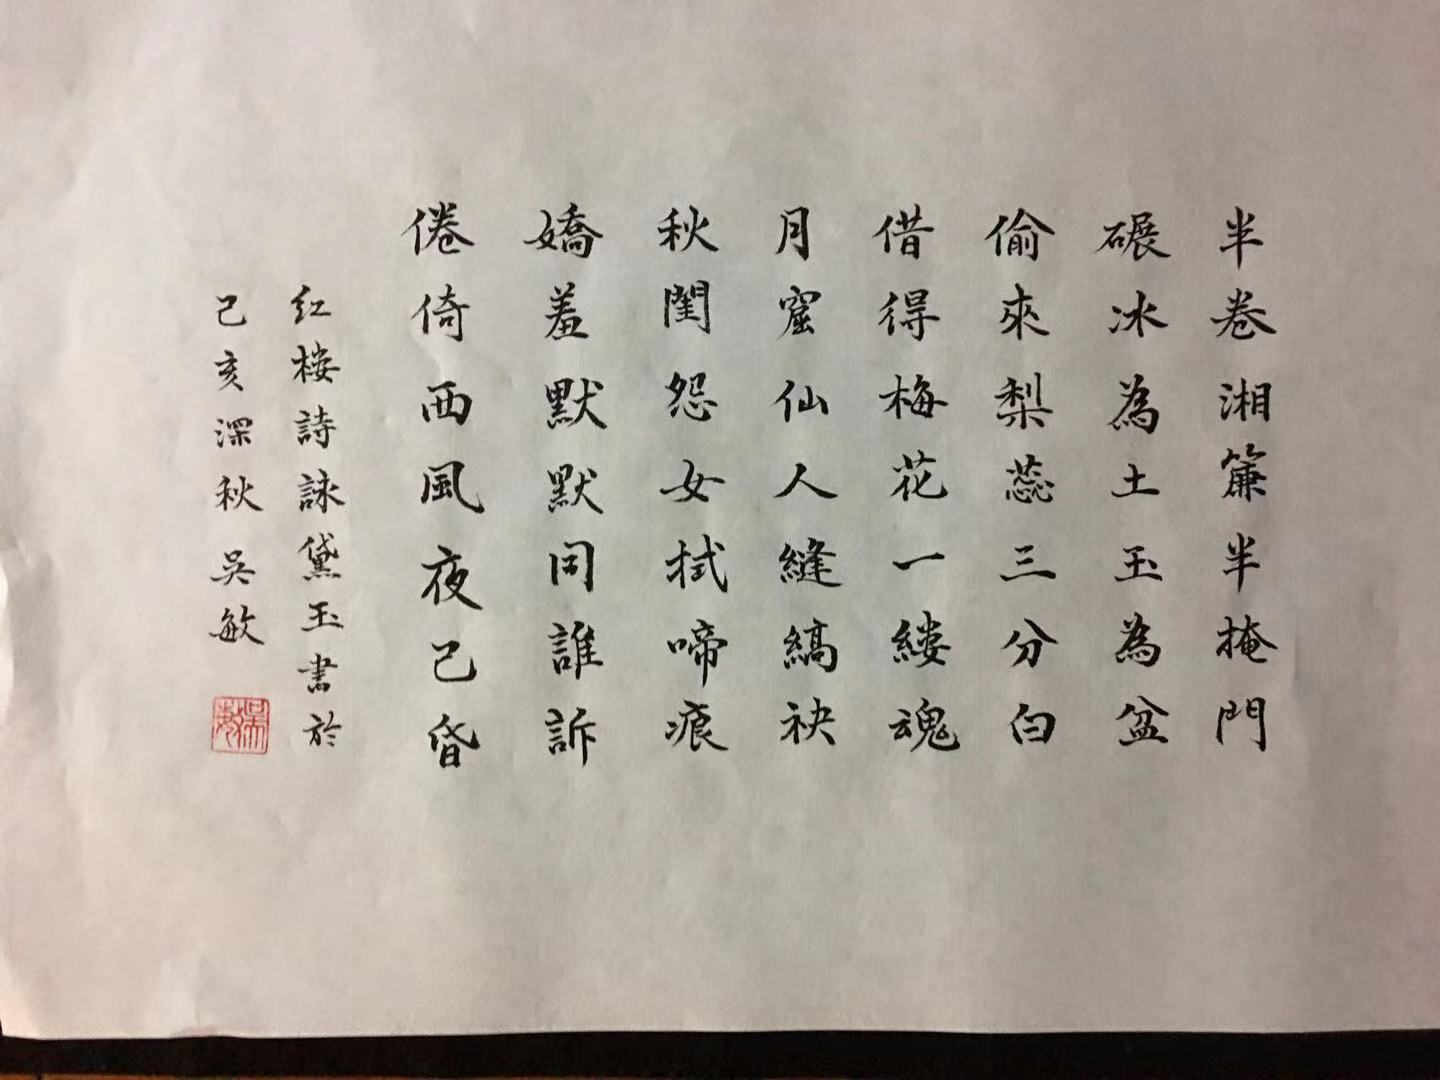 半卷湘簾半掩門
碾冰為土玉為盆
偷來梨蕊三分白
借得梅花一縷魂
月窟仙人縫縞袂
秋閨怨女拭啼痕
嬌羞默默同誰訴
倦倚西風夜已昏
红楼詩詠黛玉書於
己亥深秋吳敏
吳敏